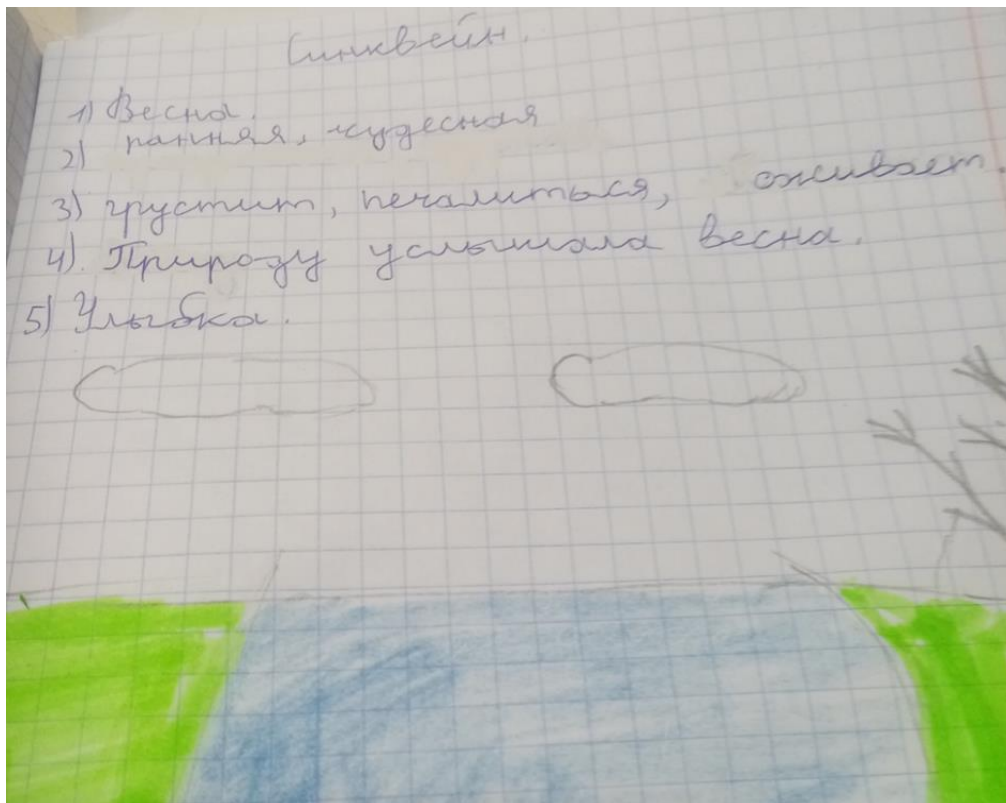 Синквейн.
1) Весна.
2) ранняя, чудесная
3) грустит, печалиться, оживает.
4). Природу услышала весна.
5) Улыбка.